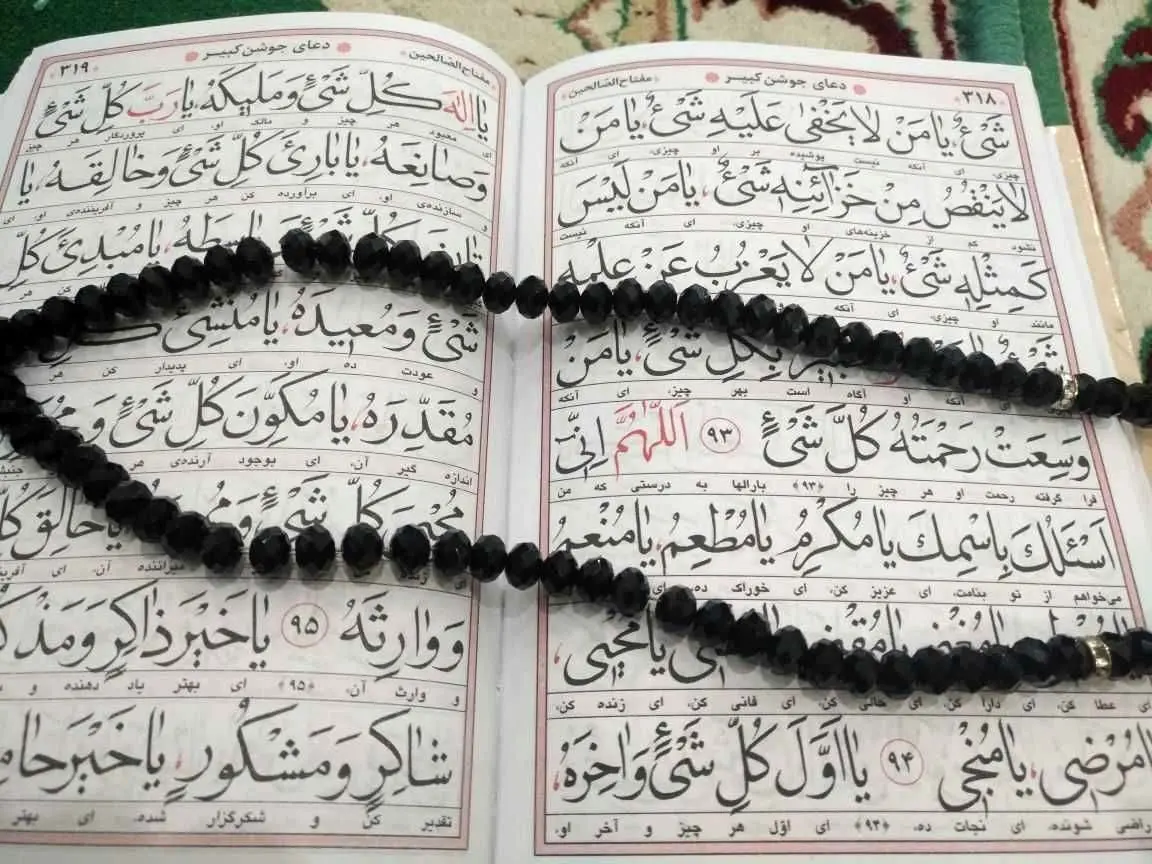 ۳۱۸ دعای جوشن کبیر مفتاح‌الصّالحین
شَیْءٌ، یا مَنْ لا یَخْفی عَلَیْهِ شَیْءٌ، یا مَنْ
چیزی، ای آنکه نیست پوشیده بر او چیزی، ای آنکه
لا یَنْقُصُ مِنْ خَزآئِنِهِ شَیْءٌ، یا مَنْ لَیْسَ
نشود کم از خزینه‌های او چیزی، ای آنکه نیست
کَمِثْلِهِ شَیْءٌ، یا مَنْ لا یَعْزُبُ عَنْ عِلْمِهِ
مانند او چیزی، ای آنکه
بِکُلِّ شَیْءٍ، یا مَنْ
آنکه او آگاه است بهر چیز، ای آنکه
وَسِعَتْ رَحْمَتُهُ کُلَّ شَیْءٍ ۹۳ اَللّهُمَّ اِنّی
فرا گرفته رحمت او هر چیز را ﴿۹۳﴾ بارالها به درستی که من
اَسْئَلُکَ بِاسْمِکَ یا مُکْرِمُ یا مُطْعِمُ، یا مُنْعِمُ
می‌خواهم از تو بنامت، ای عزیز کن، ای خوراک ده، ای
یا مُحْیی،
ای عطا کن، ای دارا کن، ای خالی کن، ای فانی کن، ای زنده کن،
یا مُرْضی، یا مُنْجی ۹۴ یا اَوَّلَ کُلِّ شَیْءٍ وَ اخِرَهُ
راضی شونده، ای نجات ده، ﴿۹۴﴾ ای اوّل هر چیز و آخر او،
مفتاح‌الصّالحین دعای جوشن کبیر ۳۱۹
یا اِلهَ کُلِّ شَیْءٍ وَ مَلیکَهُ، یا رَبَّ کُلِّ شَیْءٍ
ای معبود هر چیز و مالک او، ای پروردگار هر چیز
وَ صانِعَهُ، یا بارِئَ کُلِّ شَیْءٍ وَ خالِقَهُ، یا
و سازنده‌ی او، ای برآورده کن هر چیز و آفریننده‌ی او، ای
باسِطَهُ، یا مُبْدِئَ کُلِّ
کن هر
شَیْءٍ وَ مُعیدَهُ، یا مُنْشِئَ کُلِّ
و عودت ده او، ای پدیدار کن هر
مُقَدِّرَهُ، یا مُکَوِّنَ کُلِّ شَیْءٍ وَ
اندازه گیر آن، ای بوجود آرنده‌ی هر
مُحْیِیَ کُلِّ شَیْءٍ وَ یا خالِقَ
ای زنده میراننده آن، ای
وَ وارِثَهُ ۹۵ یا خَیْرَ ذاکِرٍ وَ
و وارث آن، ﴿۹۵﴾ ای بهتر یاد دهنده و
شاکِرٍ وَ مَشْکُورٍ، یا خَیْرَ
تقدیر کن و شکرگزار شده، ای بهتر